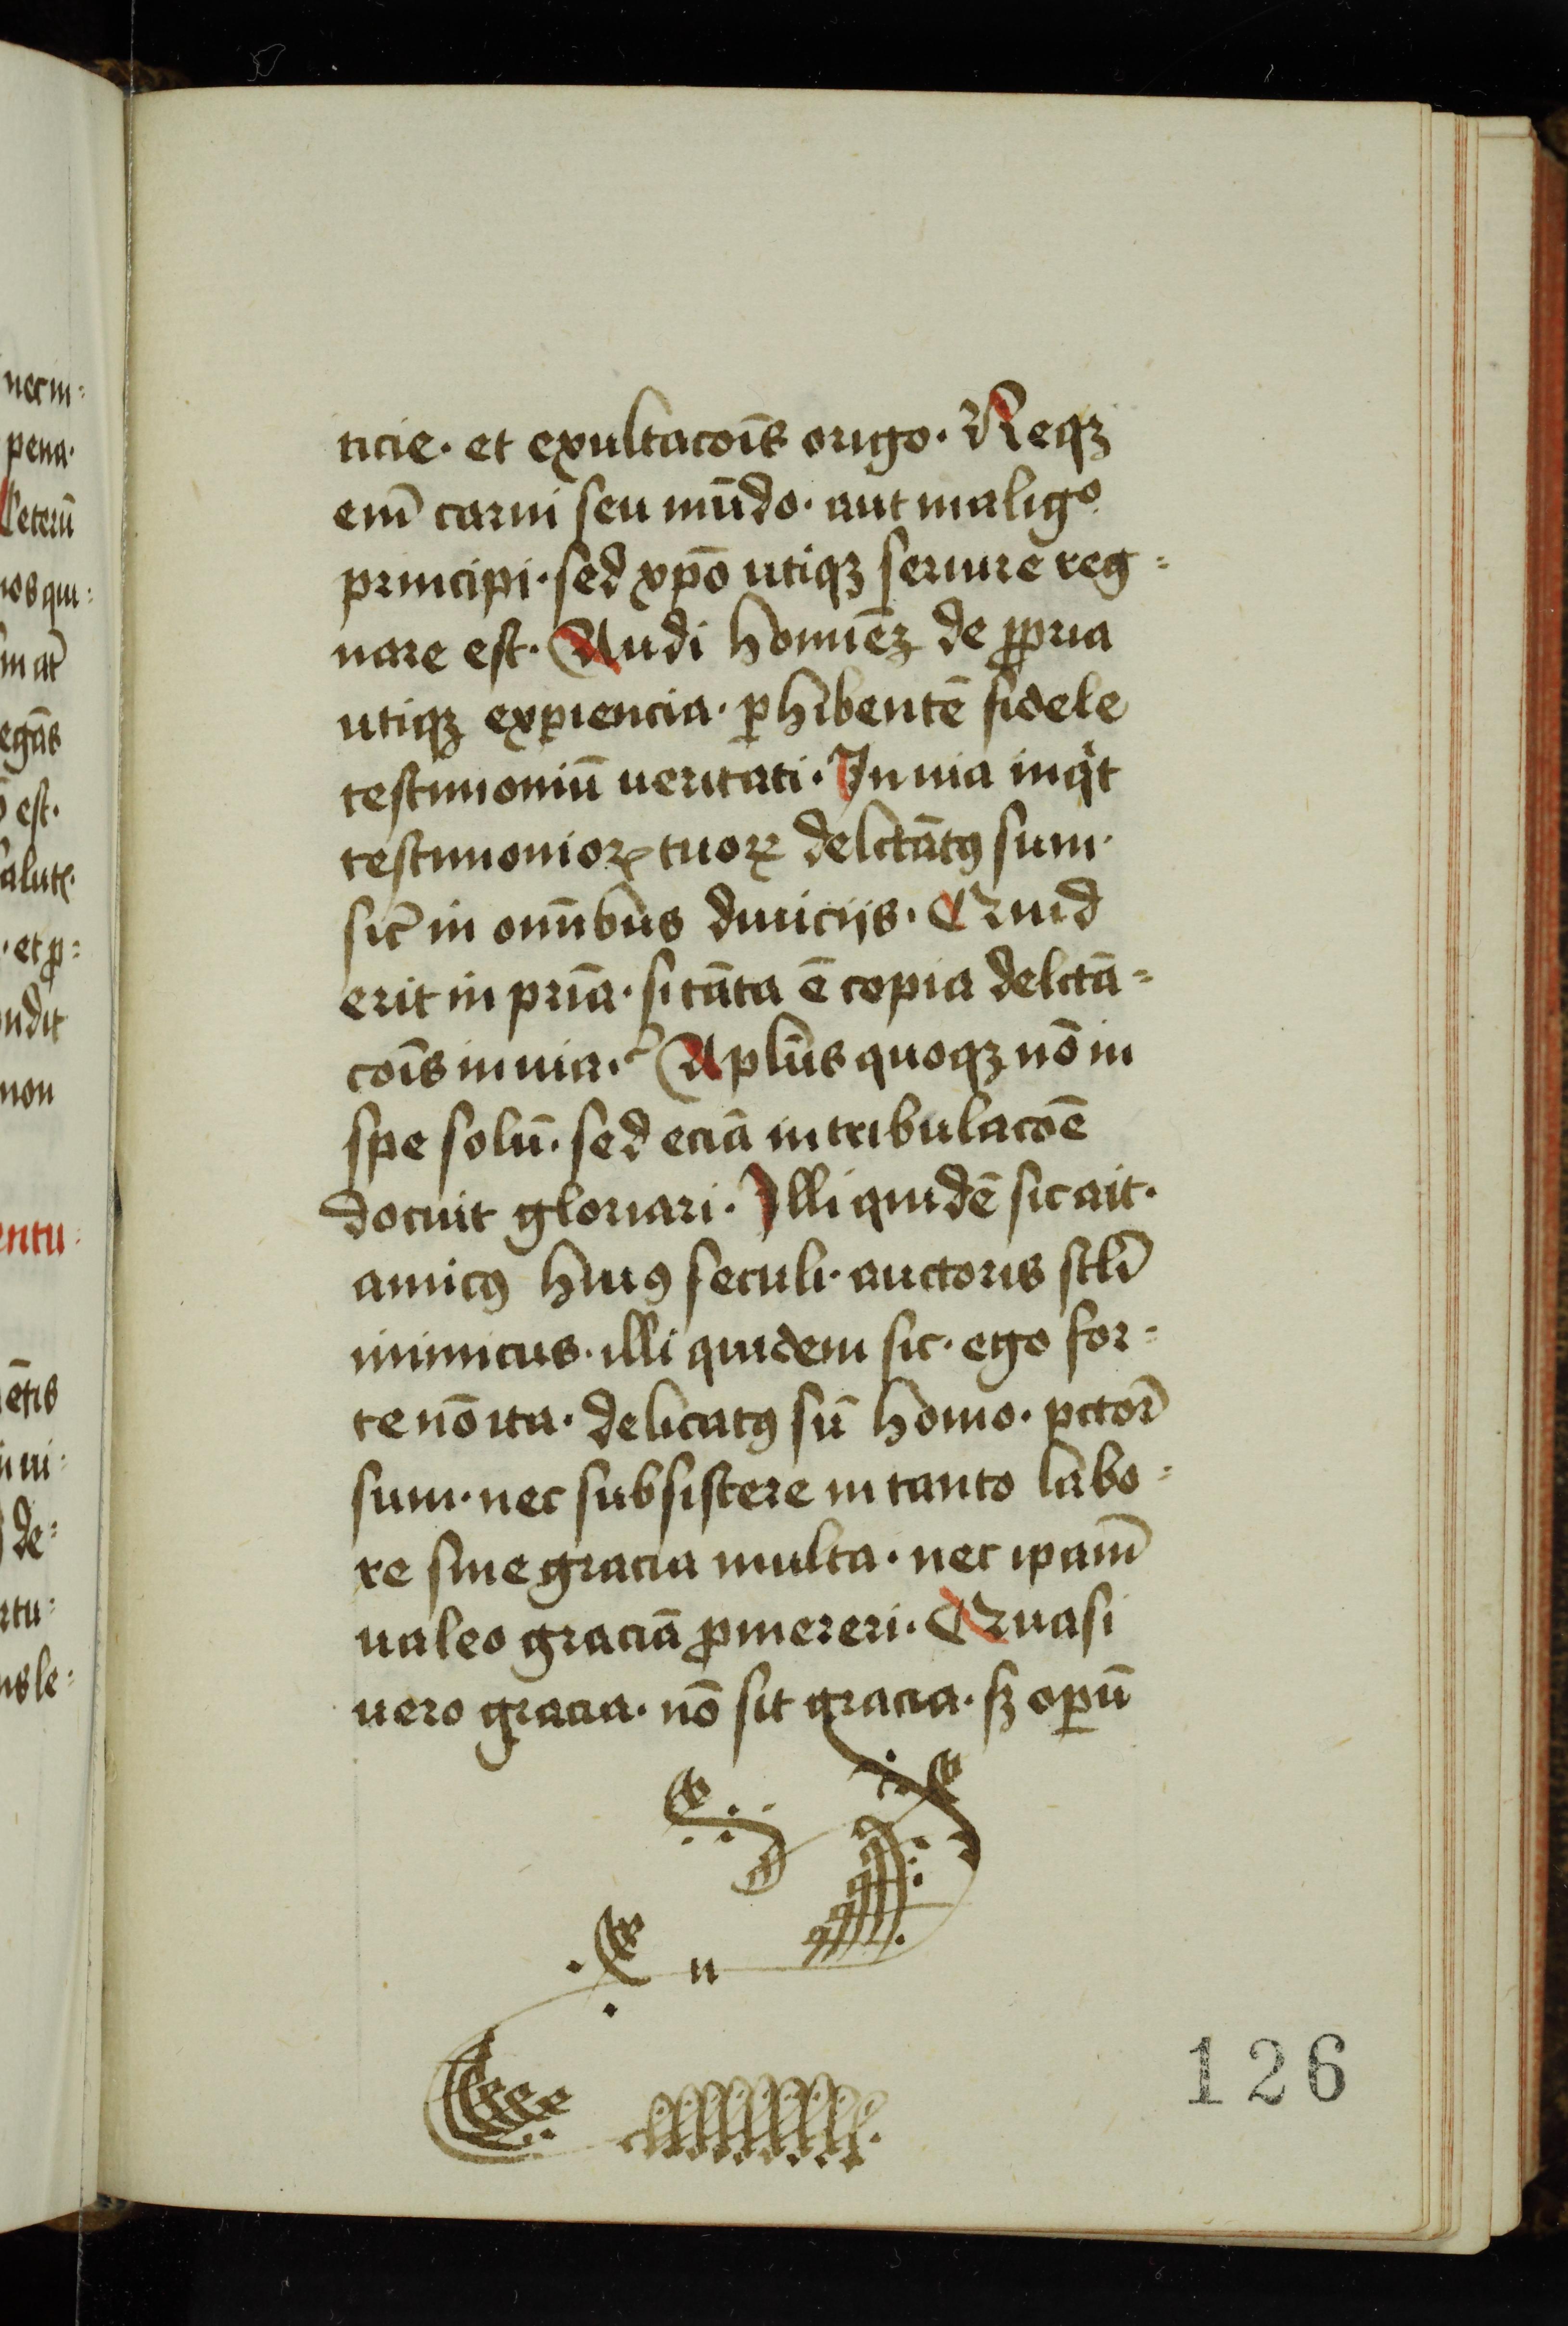 necin=
pena·
Ceterū
nos qui=
egās
est·
salutꝭ·
· et ꝓ=
ndit
non
entu=
de=
ticie· et exultacōis origo· Neqꝫ
em̄ carni seu mūdo· aut maligº
principi· sed xpō utiqꝫ seruire reg=
nare est· Audi homiēꝫ de ꝓpria
utiqꝫ exꝑiencia· ꝑhibentē fidele
testimoniū ueritati· In uia inqͥt
testimonioꝝ tuoꝝ delctātꝰ sum·
sic̄ in om̄ibus diuicijs· Quid
erit in pr̄ia· si tāta ē copia delctā=
cōis in uia·? Apl̄us quoqꝫ nō in
spe solū· sed eciā in tribulacōe
docuit gloriari· Illi quidē sic ait·
amicꝰ huiꝰ seculi· auctoris scl̄i
inimicus· illi quidem sic· ego for=
te nō ita· delicatꝰ sū homo· pctor̄
sum· nec subsistere in tanto labo=
re sine gracia multa· nec ipam̄
ualeo graciā ꝓmereri· Quasi
uero gracia· nō sit gracia· sꝫ oꝑū
126